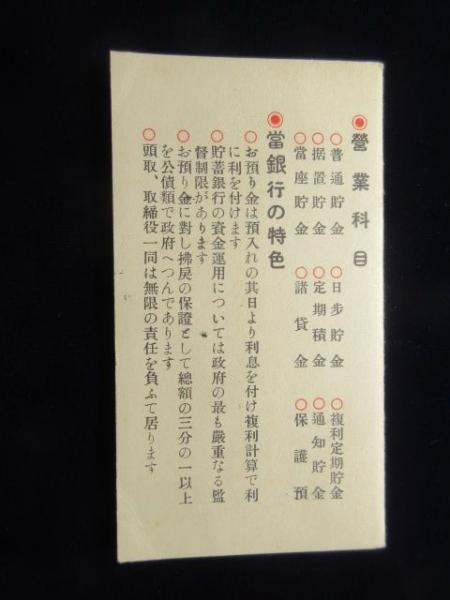 ◉營業科目
○普通貯金 ○日步貯金 ○複利定期貯金
○据置貯金 ○定期積金 ○通知貯金
○當座貯金 ○諸貸金 ○保護預
◉當銀行の特色
○お預り金は預入れの其日より利息を付け複利計算で利
に利を付けます
○貯蓄銀行の資金運用については政府の最も嚴重なる監
督制限があります
○お預り金に對し拂戾の保證として總額の三分の一以上
を公債類で政府へつんであります
○頭取、取締役一同は無限の責任を負ふて居ります